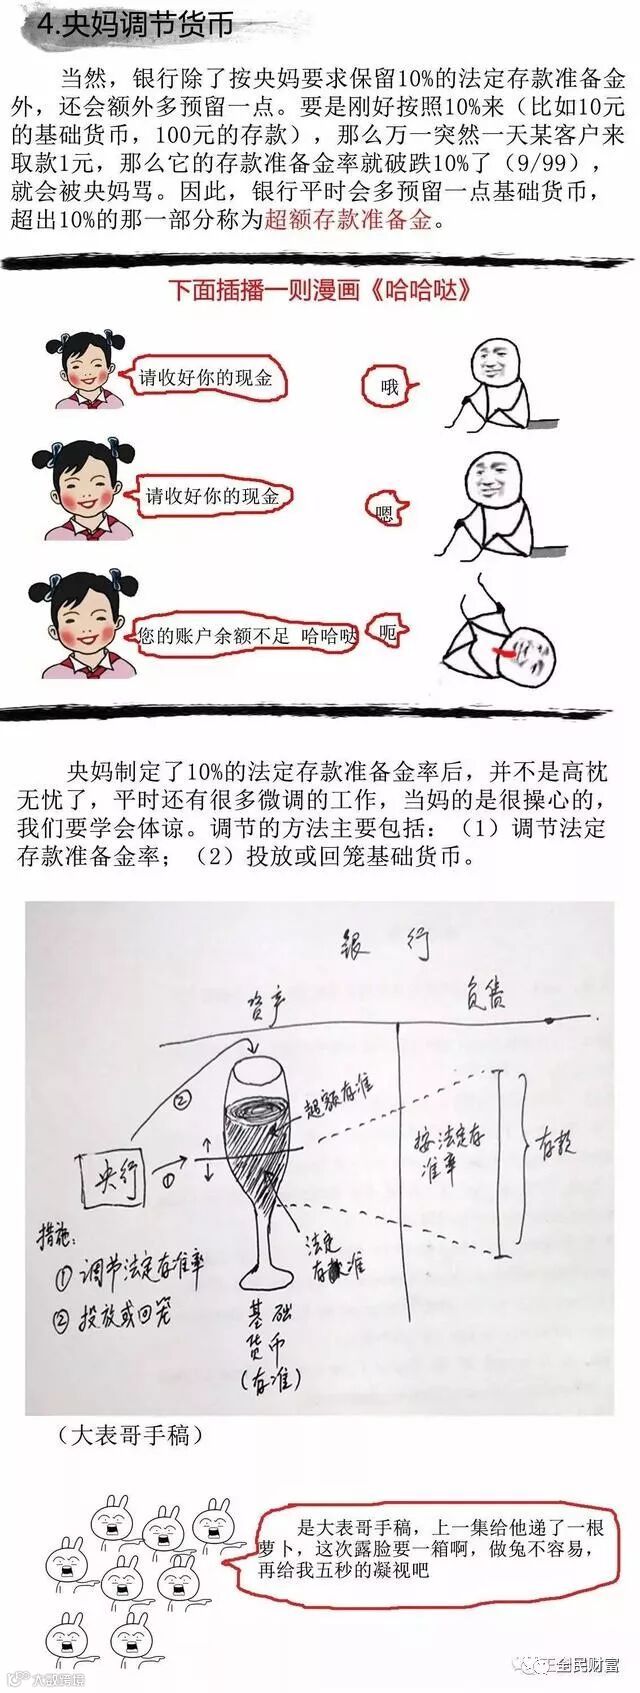 4.央妈调节货币
当然，银行除了按央妈要求保留10%的法定存款准备金
外，还会额外多预留一点。要是刚好按照10%来（比如10元
的基础货币，100元的存款），那么万一突然一天某客户来
取款1元，那么它的存款准备金率就破跌10%了（9/99），
就会被央妈骂。因此，银行平时会多预留一点基础货币，
超出10%的那一部分称为超额存款准备金。
下面插播一则漫画《哈哈哒》
请收好你的现金
哦
请收好你的现金
嗯
您的账户余额不足 哈哈哒
呃
央妈制定了10%的法定存款准备金率后，并不是高枕
无忧了，平时还有很多微调的工作，当妈的是很操心的，
我们要学会体谅。调节的方法主要包括：（1）调节法定
存款准备金率；（2）投放或回笼基础货币。
银 行
资产
负债
②
超额存准
央行
①
按法定存
准率
存款
措施：
①调节法定存准率
②投放或回笼
法定
存款准
基础
货币
(存准)
（大表哥手稿）
是大表哥手稿，上一集给他递了一根
萝卜，这次露脸要一箱啊，做兔不容易，
再给我五秒的凝视吧
全民财富
大数跨境